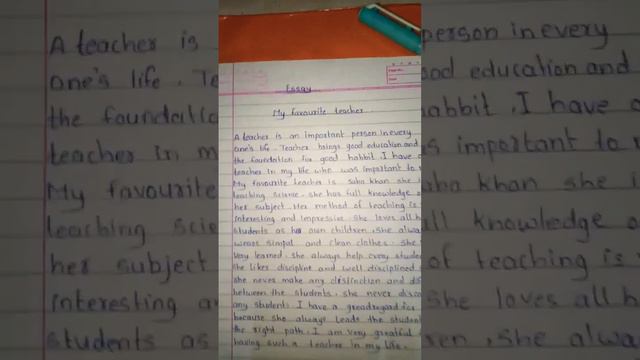 Essay
My favourite teacher
A teacher is an important person in every
one's life. Teacher beings good education and
the foundation for good habbit. I have a
teacher in my life who was important to
My favourite teacher is Saba khan she
teaching science. she has full knowledge
her subject. Her method of teaching is
interesting and impressive. She loves all h
students as her own children. she alwa
wears simpal and clean clothes. She
very learned. She always help every stude
She likes discipline and well disciplined
she never make any distinction and dis
between the students. she never disco
any student. I have a great regard for
because she always leads the student
the right path. I am very greatful
having such a teacher in my life.